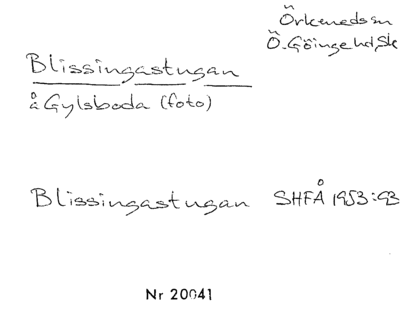 Örkeneds sn
Ö. Göinge hd, Sk
Blissingastugan
å Gylsboda (foto)
Blissingastugan SHFÅ 1953:93
Nr 20041